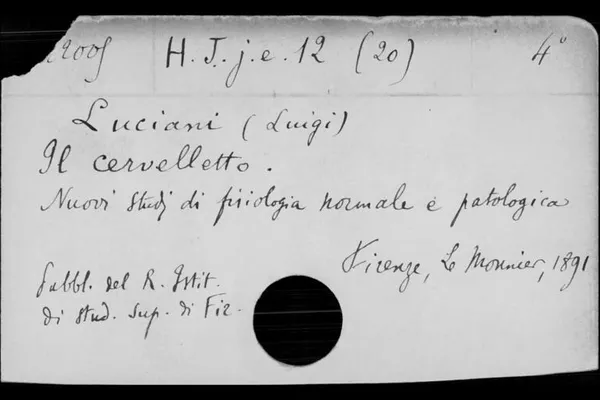 H. J. j. e. 12 (20) 4°
Luciani (Luigi)
Il cervelletto.
Nuovi studj di fisiologia normale e patologica
Firenze, Le Monnier, 1891
Pubbl. del R. Istit.
di stud. sup. di Fir.